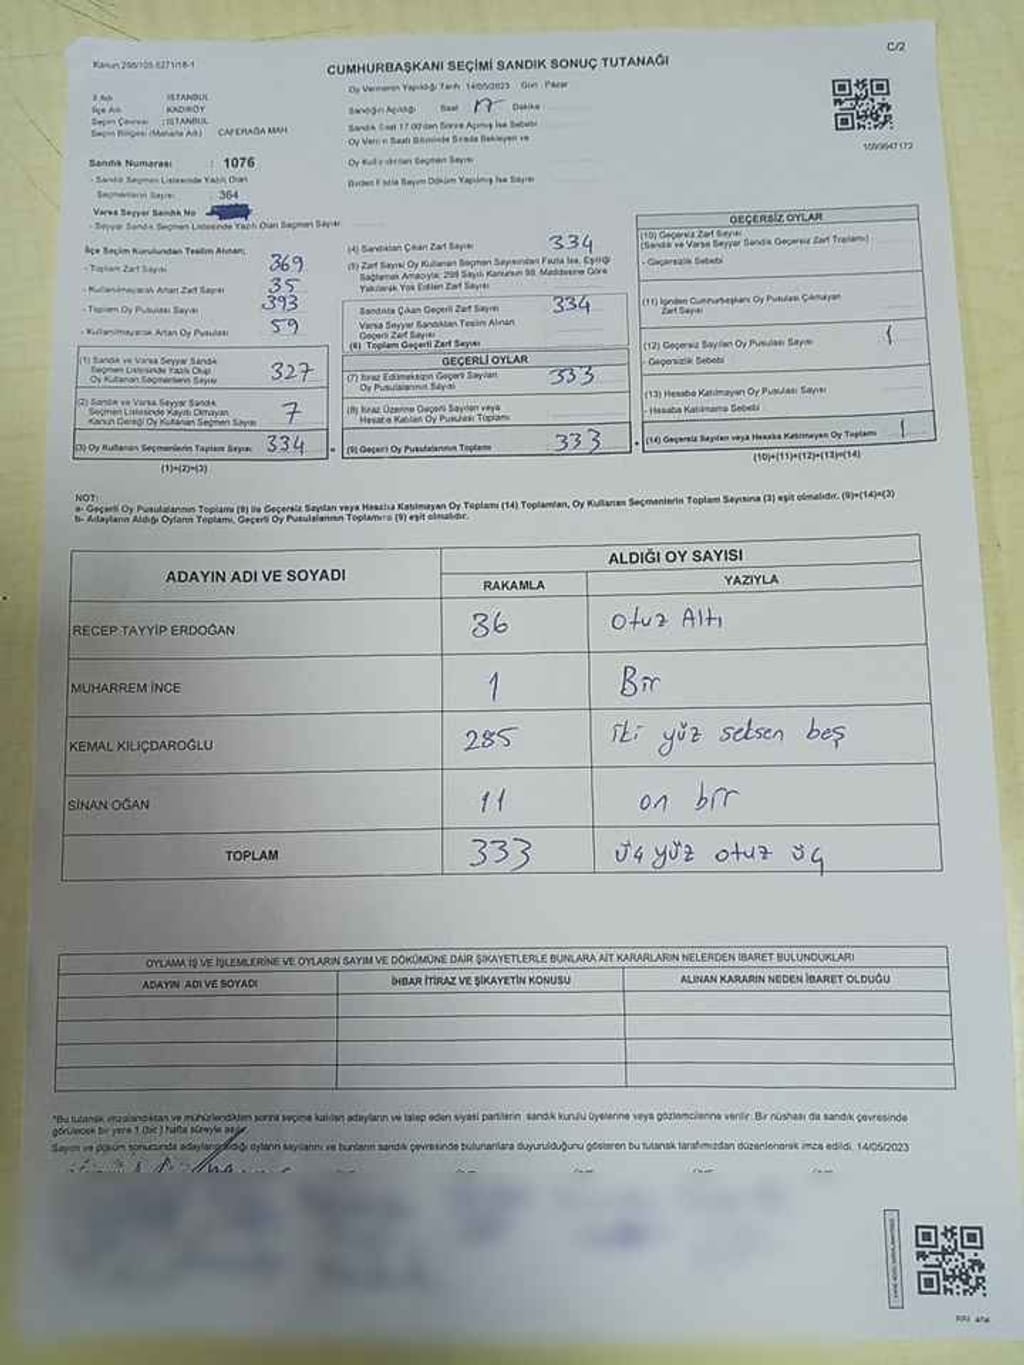 Kanun 298/105-6271/18-1
C/2
CUMHURBAŞKANI SEÇİMİ SANDIK SONUÇ TUTANAĞI
İl Adı : İSTANBUL
İlçe Adı : KADIKÖY
Seçim Çevresi : İSTANBUL
Seçim Bölgesi (Mahalle Adı) CAFERAĞA MAH.
Sandık Numarası : 1076
- Sandık Seçmen Listesinde Yazılı Olan
Seçmenlerin Sayısı : 364
Varsa Seyyar Sandık No
- Seyyar Sandık Seçmen Listesinde Yazılı Olan Seçmen Sayısı
Oy Vermenin Yapıldığı Tarih 14/05/2023 Gün : Pazar
Sandığın Açıldığı Saat 17 Dakika
Sandık Saat 17.00'den Sonra Açılmış İse Sebebi
Oy Verme Saati Bitiminde Sırada Bekleyen ve
Oy Kullandırılan Seçmen Sayısı
Birden Fazla Sayım Döküm Yapılmış İse Sayısı
İlçe Seçim Kurulundan Teslim Alınan;
- Toplam Zarf Sayısı 369
- Kullanılmayarak Artan Zarf Sayısı 35
- Toplam Oy Pusulası Sayısı 393
- Kullanılmayarak Artan Oy Pusulası 59
(1) Sandık ve Varsa Seyyar Sandık
Seçmen Listesinde Yazılı Olup
Oy Kullanan Seçmenlerin Sayısı 327
(2) Sandık ve Varsa Seyyar Sandık
Seçmen Listesinde Kayıtlı Olmayan
Kanun Gereği Oy Kullanan Seçmen Sayısı 7
(3) Oy Kullanan Seçmenlerin Toplam Sayısı 334
(1)+(2)=(3)
(4) Sandıktan Çıkan Zarf Sayısı 334
(5) Zarf Sayısı Oy Kullanan Seçmen Sayısından Fazla İse, Eşitliği
Sağlamak Amacıyla; 298 Sayılı Kanunun 98. Maddesine Göre
Yakılarak Yok Edilen Zarf Sayısı
Sandıkta Çıkan Geçerli Zarf Sayısı 334
Varsa Seyyar Sandıktan Teslim Alınan
Geçerli Zarf Sayısı
(6) Toplam Geçerli Zarf Sayısı
GEÇERLİ OYLAR
(7) İtiraz Edilmeksizin Geçerli Sayılan
Oy Pusulalarının Sayısı 333
(8) İtiraz Üzerine Geçerli Sayılan veya
Hesaba Katılan Oy Pusulası Toplamı
(9) Geçerli Oy Pusulalarının Toplamı 333
GEÇERSİZ OYLAR
(10) Geçersiz Zarf Sayısı
(Sandık ve Varsa Seyyar Sandık Geçersiz Zarf Toplamı)
- Geçersizlik Sebebi
(11) İçinden Cumhurbaşkanı Oy Pusulası Çıkmayan
Zarf Sayısı
(12) Geçersiz Sayılan Oy Pusulası Sayısı 1
- Geçersizlik Sebebi
(13) Hesaba Katılmayan Oy Pusulası Sayısı
- Hesaba Katılmama Sebebi
(14) Geçersiz Sayılan veya Hesaba Katılmayan Oy Toplamı 1
(10)+(11)+(12)+(13)=(14)
NOT:
a- Geçerli Oy Pusulalarının Toplamı (9) ile Geçersiz Sayılan veya Hesaba Katılmayan Oy Toplamı (14) Toplamları, Oy Kullanan Seçmenlerin Toplam Sayısına (3) eşit olmalıdır. (9)+(14)=(3)
b- Adayların Aldığı Oyların Toplamı, Geçerli Oy Pusulalarının Toplamına (9) eşit olmalıdır.
ADAYIN ADI VE SOYADI
ALDIĞI OY SAYISI
RAKAMLA YAZIYLA
RECEP TAYYİP ERDOĞAN 36 Otuz Altı
MUHARREM İNCE 1 Bir
KEMAL KILIÇDAROĞLU 285 iki yüz seksen beş
SİNAN OĞAN 11 on bir
TOPLAM 333 üç yüz otuz üç
OYLAMA İŞ VE İŞLEMLERİNE VE OYLARIN SAYIM VE DÖKÜMÜNE DAİR ŞİKAYETLERLE BUNLARA AİT KARARLARIN NELERDEN İBARET BULUNDUKLARI
ADAYIN ADI VE SOYADI İHBAR İTİRAZ VE ŞİKAYETİN KONUSU ALINAN KARARIN NEDEN İBARET OLDUĞU
"Bu tutanak imzalandıktan ve mühürlendikten sonra seçime katılan adayların ve talep eden siyasi partilerin sandık kurulu üyelerine veya gözlemcilerine verilir. Bir nüshası da sandık çevresinde
görülecek bir yere 1 (bir) hafta süreyle asılır.
Sayım ve döküm sonucunda adayların aldığı oyların sayılarını ve bunların sandık çevresinde bulunanlara duyurulduğunu gösteren bu tutanak tarafımızdan düzenlenerek imza edildi. 14/05/2023